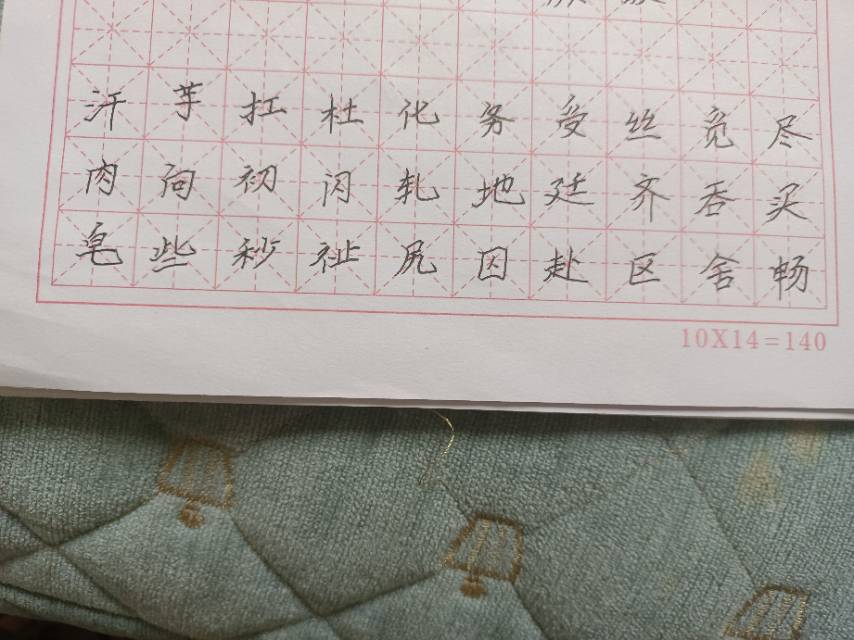 汗芋扛杜化务受丝觅尽
肉向初闪轧地廷齐吞买
皂些秒祉尻囚赴区舍畅
10X14=140